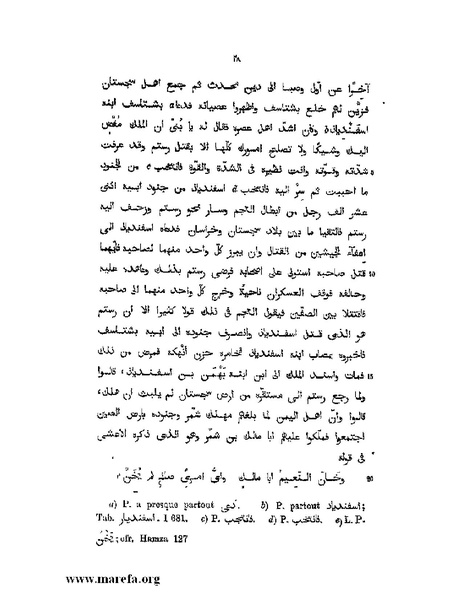 ٢٨
آخرًا عن أول وصبا الى دين محدث ثم جمع اهل سجستان
فزيّن لهم خلع بشتاسف واظهروا عصيانه فدعاه بشتاسف ابنه
اسفندياذ وكان اشدّ اهل عصره فقال له يا بُنَىّ ان الملك مُفْضٍ
اليك وشيكًا ولا تصلح امورك كلّها الا بقتل رستم وقد عرفت
5 شدّته وقوّته وانت نظيره فى الشدّة والقوّة فانتخب c من الجنود
ما احببت ثم سِرْ اليه فانتخب d اسفندياذ من جنود ابيه اثنى
عشر الف رجل من ابطال العجم وسار نحو رستم وزحف اليه
رستم فالتقيا ما بين بلاد سجستان وخراسان فدعاه اسفندياذ الى
اعفآء الجيشين من القتال وان يبرز كلّ واحد منهما لصاحبه فايّهما
10 قتل صاحبه استولى على اصحابه فرضى رستم بذلك وعاهده عليه
وحالفه فوقف العسكران ناحيةً وخرج كلّ واحد منهما الى صاحبه
فاقتتلا بين الصفّين فيقول العجم فى ذلك قولا كثيرا الا ان رستم
هو الذى قتل اسفندياذ وانصرف جنوده الى ابيه بشتاسف
فاخبروه بمصاب ابنه اسفندياذ فخامره حزن انهكه فمرض من ذلك
15 فمات واسند الملك الى ابن ابنه بَهْمَن بن اسفندياذ، قالوا
ولما رجع رستم الى مستقرّه من ارض سجستان لم يلبث ان هلك،
قالوا وانّ اهل اليمن لما بلغهم مهلك شمّر وجنوده بارض الصين
اجتمعوا فملّكوا عليهم ابا مالك بن شمّر وهو الذى ذكره الاعشى
فى قوله
20 وخان النّعيمُ ابا مالكٍ وأىُّ امرئٍ صالحٍ لم يُخَنْ
a) P. a presque partout دى. b) P. partout اسفندياد;
Tab. اسفنديار. I 681. c) P. فانتجب. d) P. فانتجب. e) L. P.
يَخُنْ; cfr. Hamza 127
www.marefa.org